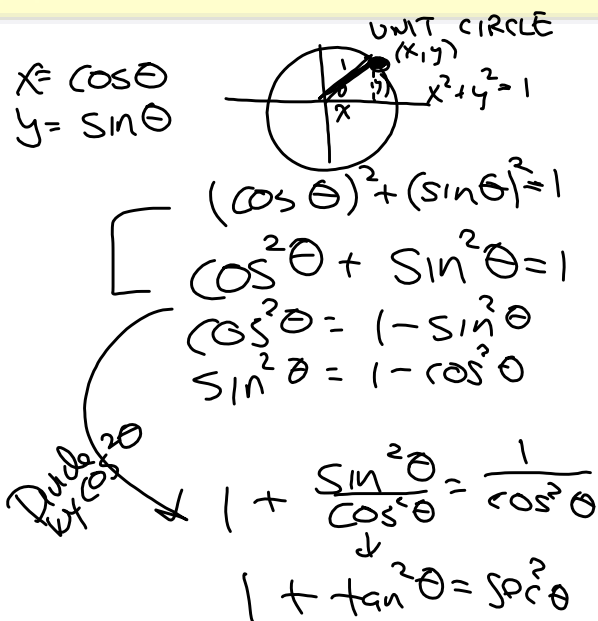 UNIT CIRCLE
x = cosθ
y = sinθ
1
(x,y)
θ
y
x
x²+y²=1
(cos θ)²+(sinθ)²=1
cos²θ + sin²θ=1
cos²θ = 1-sin²θ
sin²θ = 1-cos²θ
Divide by cos²θ
1 + sin²θ/cos²θ = 1/cos²θ
1 + tan²θ = sec²θ